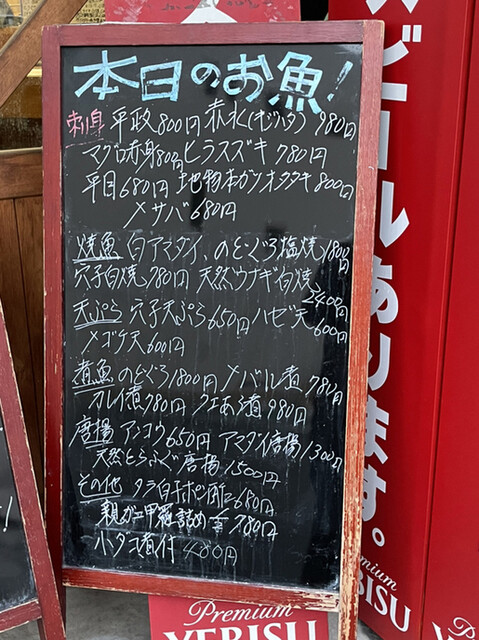 本日のお魚!
刺身 平政800円 赤水(キジハタ) 980円
マグロ赤身880円 ヒラスズキ 780円
平目680円 地物本カツオタタキ800円
〆サバ680円
焼魚 白アマダイ、のどぐろ塩焼1800円
穴子白焼980円 天然ウナギ白焼
2400円
天ぷら 穴子天ぷら650円 ハゼ天600円
メゴチ天600円
煮魚 のどぐろ1800円 メバル煮780円
カレイ煮780円 クエあら煮980円
唐揚 アンコウ650円 アマダイ唐揚1300円
天然とらふぐ唐揚1500円
その他 タラ白子ポン酢680円
親ガニ甲羅詰め 780円
小ダコ煮付 480円
ビールあります。
Premium
YEBISU
Premium
YEBISU